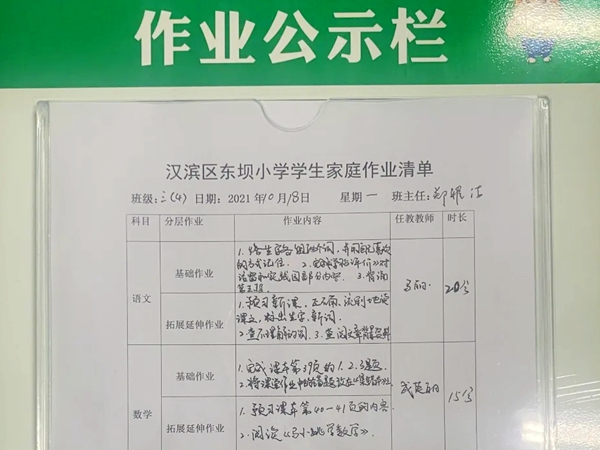 作业公示栏
汉滨区东坝小学学生家庭作业清单
班级:三(4) 日期:2021年10月18日 星期一 班主任:
科目 分层作业 作业内容 任教教师 时长
语文
基础作业
1.将生字各组两个词,并用自己喜欢
的方式记住。2.完成《学习评价》对
第三段
20分
拓展延伸作业
1.预习新课,正确、流利地读
课文,标出生字、新词。
2.查不理解的词 3.查阅文章背景资料
数学
基础作业
1.完成课本第39页的1.2.3题。
15分
拓展延伸作业
1.预习课本第40—41页的内容
2.阅读《马小跳学数学》.